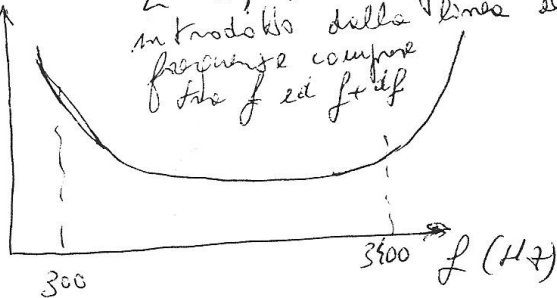 introdotto dalla linea
frequenze comprese
tra f ed f+df
300
3400
f (Hz)